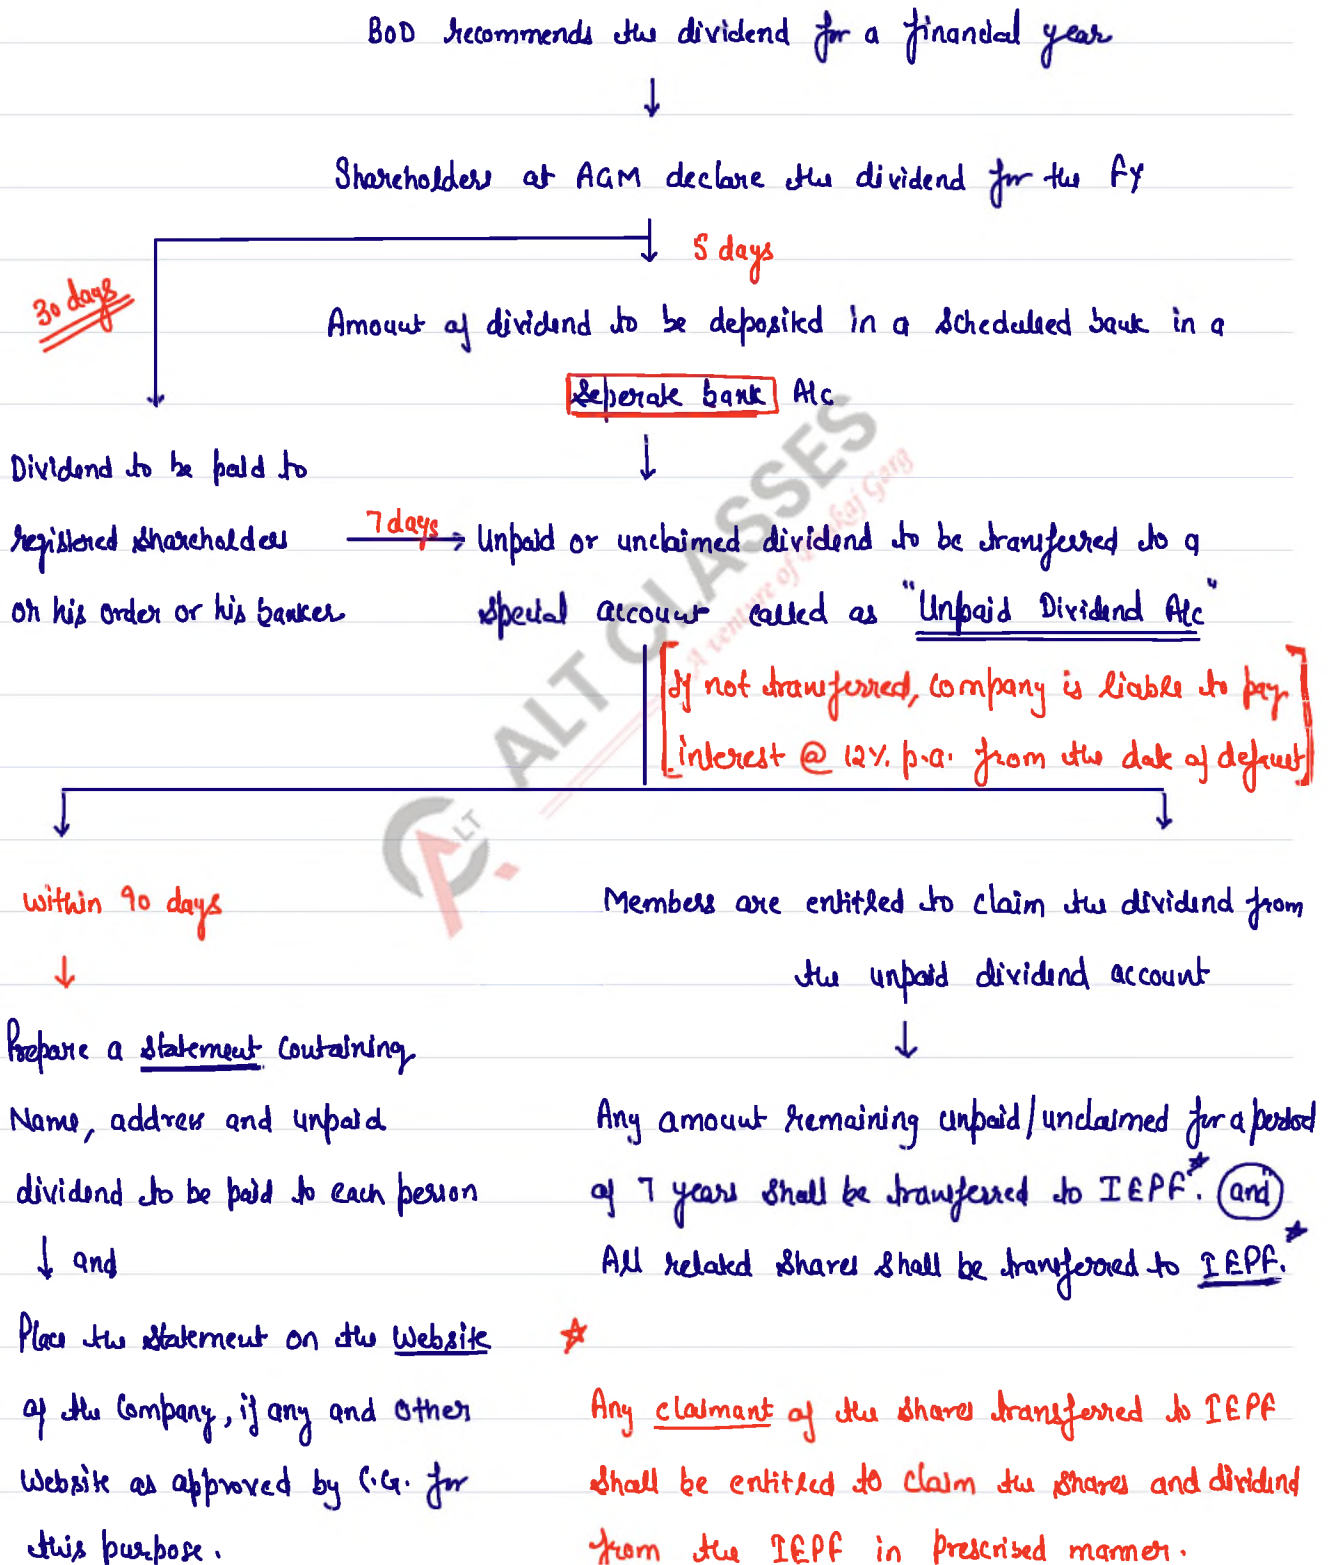 BOD recommends the dividend for a financial year
Shareholders at AGM declare the dividend for the FY
5 days
30 days
Amount of dividend to be deposited in a scheduled bank in a
Seperate bank A/c
Dividend to be paid to
registered shareholders
or his order or his banker
7 days
Unpaid or unclaimed dividend to be transferred to a
special account called as "Unpaid Dividend A/c"
[If not transferred, company is liable to pay
interest @ 12% p.a. from the date of default]
within 90 days
Members are entitled to claim the dividend from
the unpaid dividend account
Prepare a statement containing
Name, address and unpaid
dividend to be paid to each person
and
Place the statement on the website
of the Company, if any and other
website as approved by C.G. for
this purpose.
Any amount remaining unpaid/unclaimed for a period
of 7 years shall be transferred to IEPF*. and
All related shares shall be transferred to IEPF.*
Any claimant of the shares transferred to IEPF
shall be entitled to claim the shares and dividend
from the IEPF in prescribed manner.
ALT CLASSES
A venture of Garg
ALT